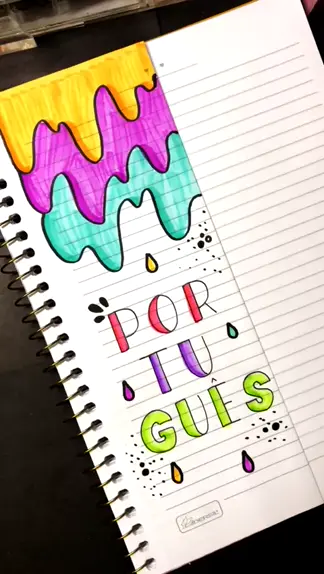 POR
TU
GUÊS